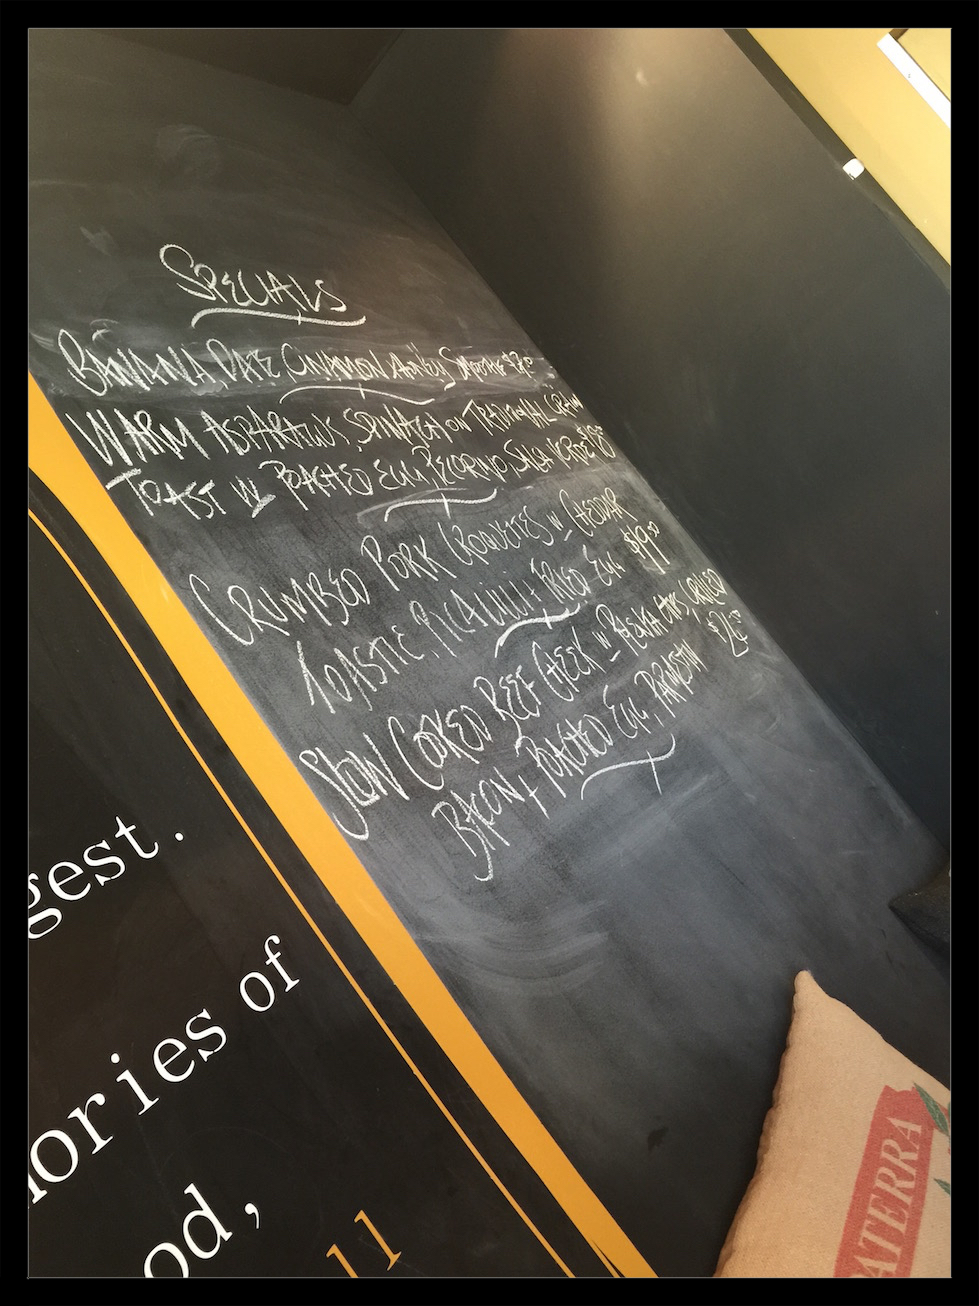 SPECIALS
BANANA, DATE CINNAMON HONEY SMOOTHIE
WARM ASPARAGUS, SPINACH ON TRADITIONAL GRAIN
TOAST W POACHED EGG, PECORINO, SALSA VERDE
CRUMBED PORK CROQUETTES W CHEDDAR
TOASTIE, PICALILLI + FRIED EGG $19.00
SLOW COOKED BEEF CHEEK W GRILLED
BACON + POACHED EGG,
gest.
ories of
od,
ll
ATERRA